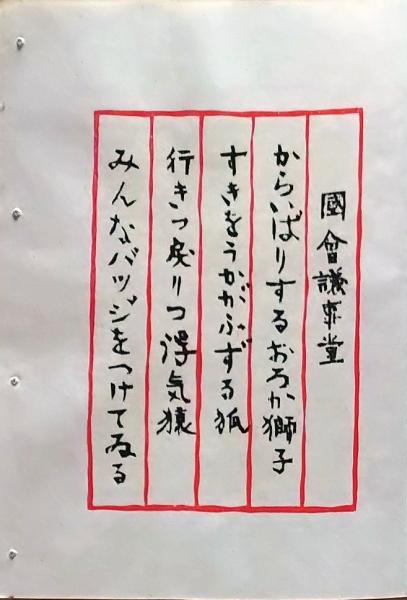 國會議事堂
からいばりするおろか獅子
すきをうかがふずる狐
行きつ戻りつ浮気猿
みんなバッジをつけてゐる